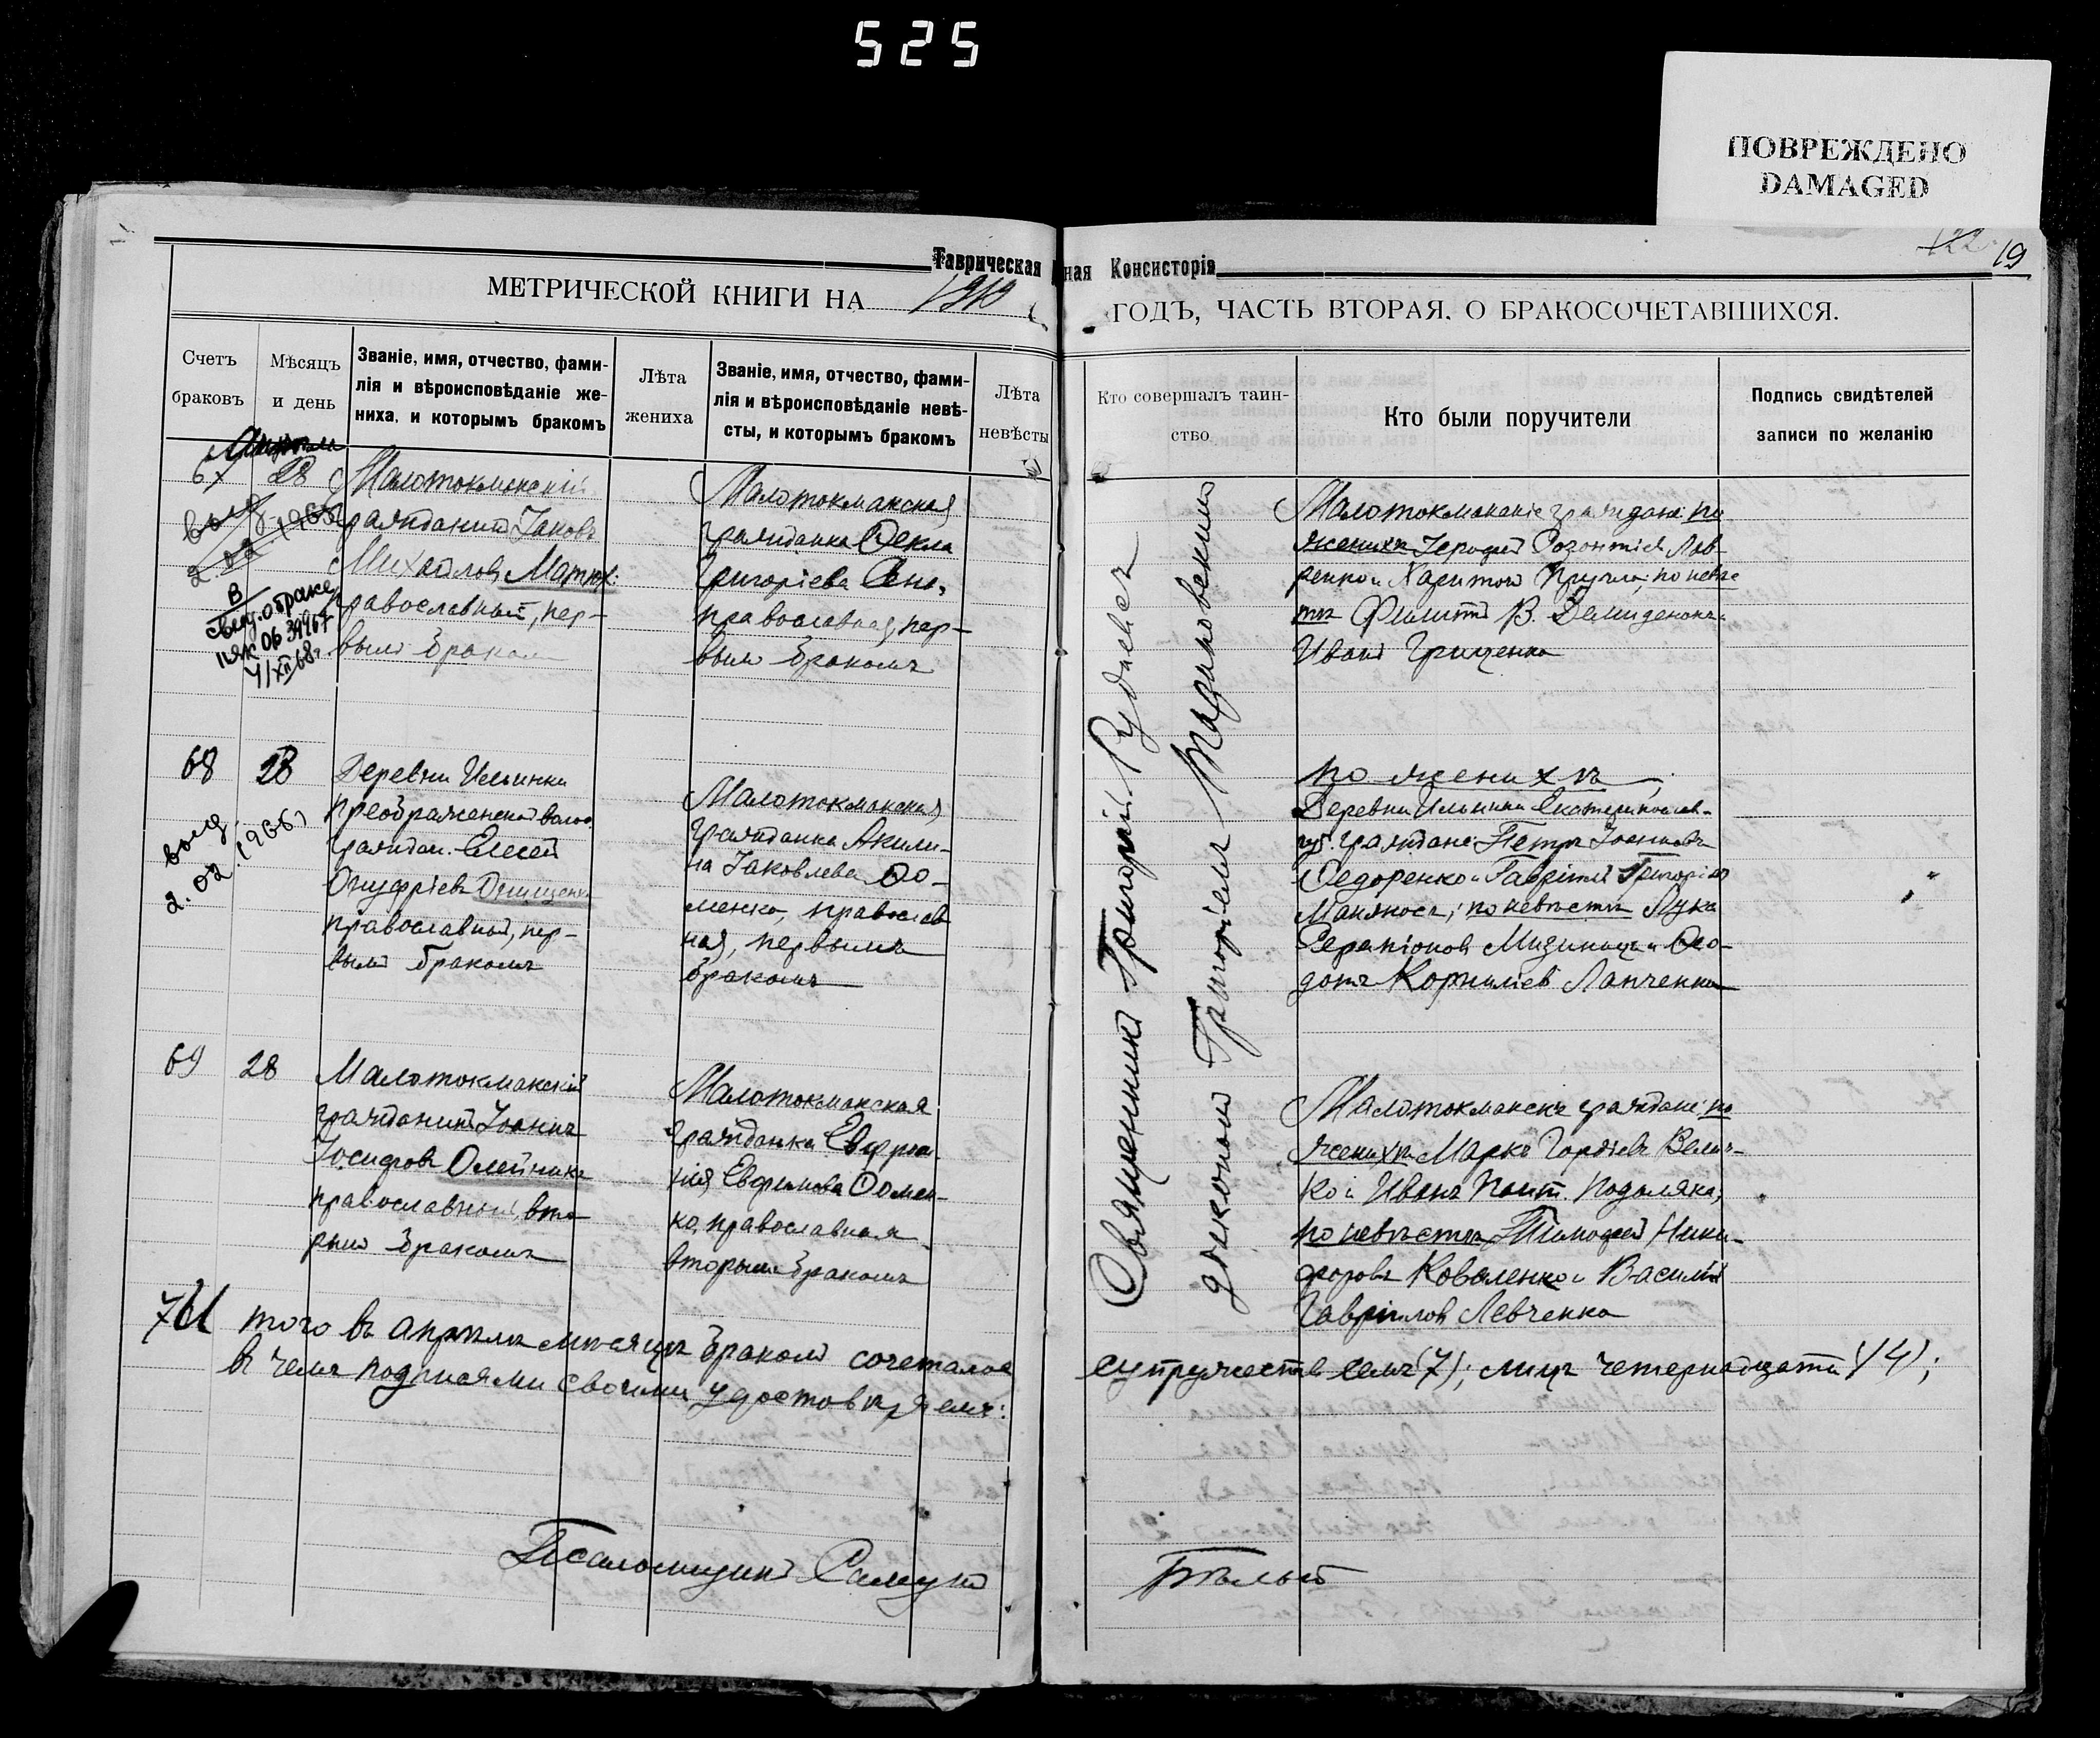 525
ПОВРЕЖДЕНО
DAMAGED
19
Таврическая
ная Консисторія
МЕТРИЧЕСКОЙ КНИГИ НА
ГОДЪ, ЧАСТЬ ВТОРАЯ, О БРАКОСОЧЕТАВШИХСЯ.
Счетъ
браковъ
Мѣсяцъ
и день
Званіе, имя, отчество, фами-
лія и вѣроисповѣданіе же-
ниха, и которымъ бракомъ
Лѣта
жениха
Званіе, имя, отчество, фами-
лія и вѣроисповѣданіе невѣ-
сты, и которымъ бракомъ
Лѣта
невѣсты
Кто совершалъ таин-
ство
Кто были поручители
Подпись свидѣтелей
записи по желанію
67
28
Малотокмакскій
гражданинъ Іаковъ
Михайловъ Матюх:
православный, пер-
вымъ бракомъ
Малотокмакская
гражданка Ѳекла
Григоріева
православная, пер-
вымъ бракомъ
Малотокмакскіе граждане: по
женихѣ Іерофей Лав-
ренко и Харитонъ по невѣс
тѣ Филиппъ В. Демиденокъ и
Иванъ Грищенко
В
свид. о браке
4/XII 68 г
68
28
выд.
2.02.1966
Деревни Ильинки
Преображенской волос.
граждан. Елисей
Онуфріевъ Онищенко
православный, пер-
вымъ бракомъ
Малотокмакская
гражданка Акили-
на Іаковлева Ѳо-
менко, православ
ная, первымъ
бракомъ
по женихѣ;
Деревни Ильинки Екатеринослав.
губ. граждане: Петръ Іоанновъ
Ѳедоренко и Гавріилъ Григоріев
по невѣстѣ Лука
Серапіоновъ Мизинецъ и Ѳео-
дотъ Корниліевъ Лапченко
69
28
Малотокмакскій
гражданинъ Іоаннъ
Іосифовъ Олейникъ
православный, вто-
рымъ бракомъ
Малотокмакская
гражданка Евфро-
Евфимова Ѳомен-
ко, православная
вторымъ бракомъ
Малотокмакскіе граждане: по
женихѣ Марко Гордіевъ Велич-
ко и Иванъ Подоляка;
по невѣстѣ Тимофей Ники-
форовъ Коваленко и Василій
Гавріиловъ Левченко
Священникъ Григорій Рудневъ
діакономъ Григоріемъ Мациновскимъ
того въ апрѣлѣ мѣсяцѣ бракомъ сочеталось
супружествъ семь (7); лицъ четырнадцать (14);
въ чемъ подписями своими удостовѣряемъ:
Псаломщикъ
Бѣлый